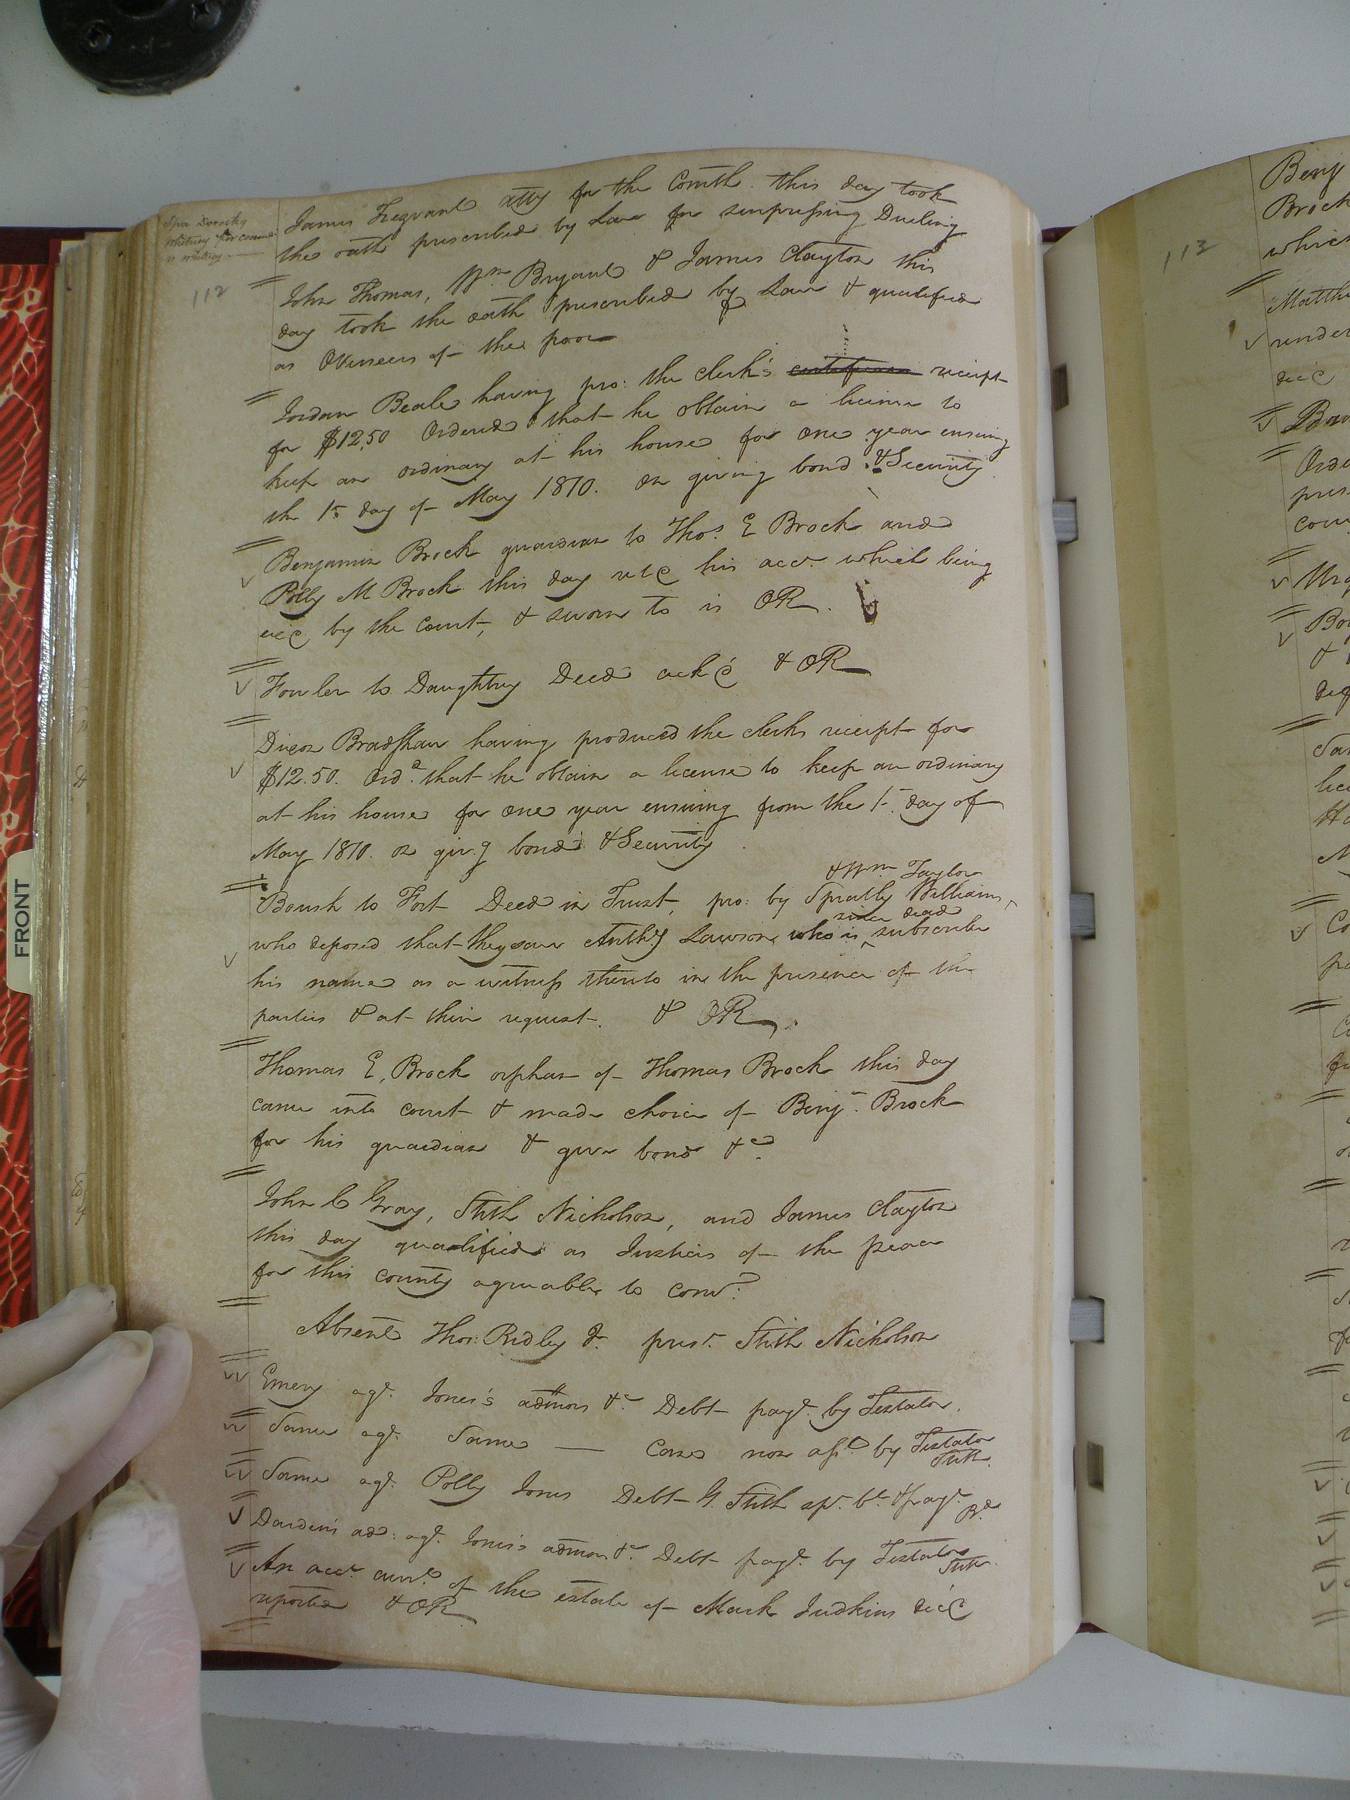 112
James Trezvant atty for the Comth. this day took
the oath prescribed by Law for surpressing Dueling
John Thomas, Wm Bryant & James Clayton this
day took the oath prescribed by Law & qualified
as Overseers of the poor
Jordan Beale having pro: the clerk's receipt
for $12.50 Ordered that he obtain a license to
keep an ordinary at his house for one year ensuing
the 1st day of May 1810. on giving bond & Security
Benjamin Brock guardian to Thos. E Brock and
Polly M Brock this day retd his acct which being
exd by the court, & sworn to is OR.
Fowler to Daughtrey Deed ackd & OR
Dixon Bradshaw having produced the clerks receipt for
$12.50. Ordd. that he obtain a license to keep an ordinary
at his house for one year ensuing from the 1st day of
May 1810. on givg bond & Security
& Wm Taylor
Boush to Fort Deed in Trust, pro: by Spratly Williams
since dead
who deposed that they saw Anthy Lawson, who is subscribe
his name as a witness thereto in the presence of the
parties & at their request. & OR
Thomas E. Brock orphan of Thomas Brock this day
came into court & made choice of Benjn. Brock
for his guardian & give bond &c
John C Gray, Stith Nicholson, and James Clayton
this day qualified as Justices of the peace
for this county agreeable to comn.
Absent Thos: Ridley Jr. prest. Stith Nicholson
Emery agt. Jones's admors &c Debt payt. by Testator.
Same agt. Same — Case non asst by Testator
Stith
Same agt. Polly Jones Debt G. Stith &payt.
Darden's ads: agt. Jones's admors &c Debt payt. by Testator
Stith
An acct currt. of the estate of Mark Judkins decd
reported & OR
113
Benj
Brock
which
Matth
FRONT